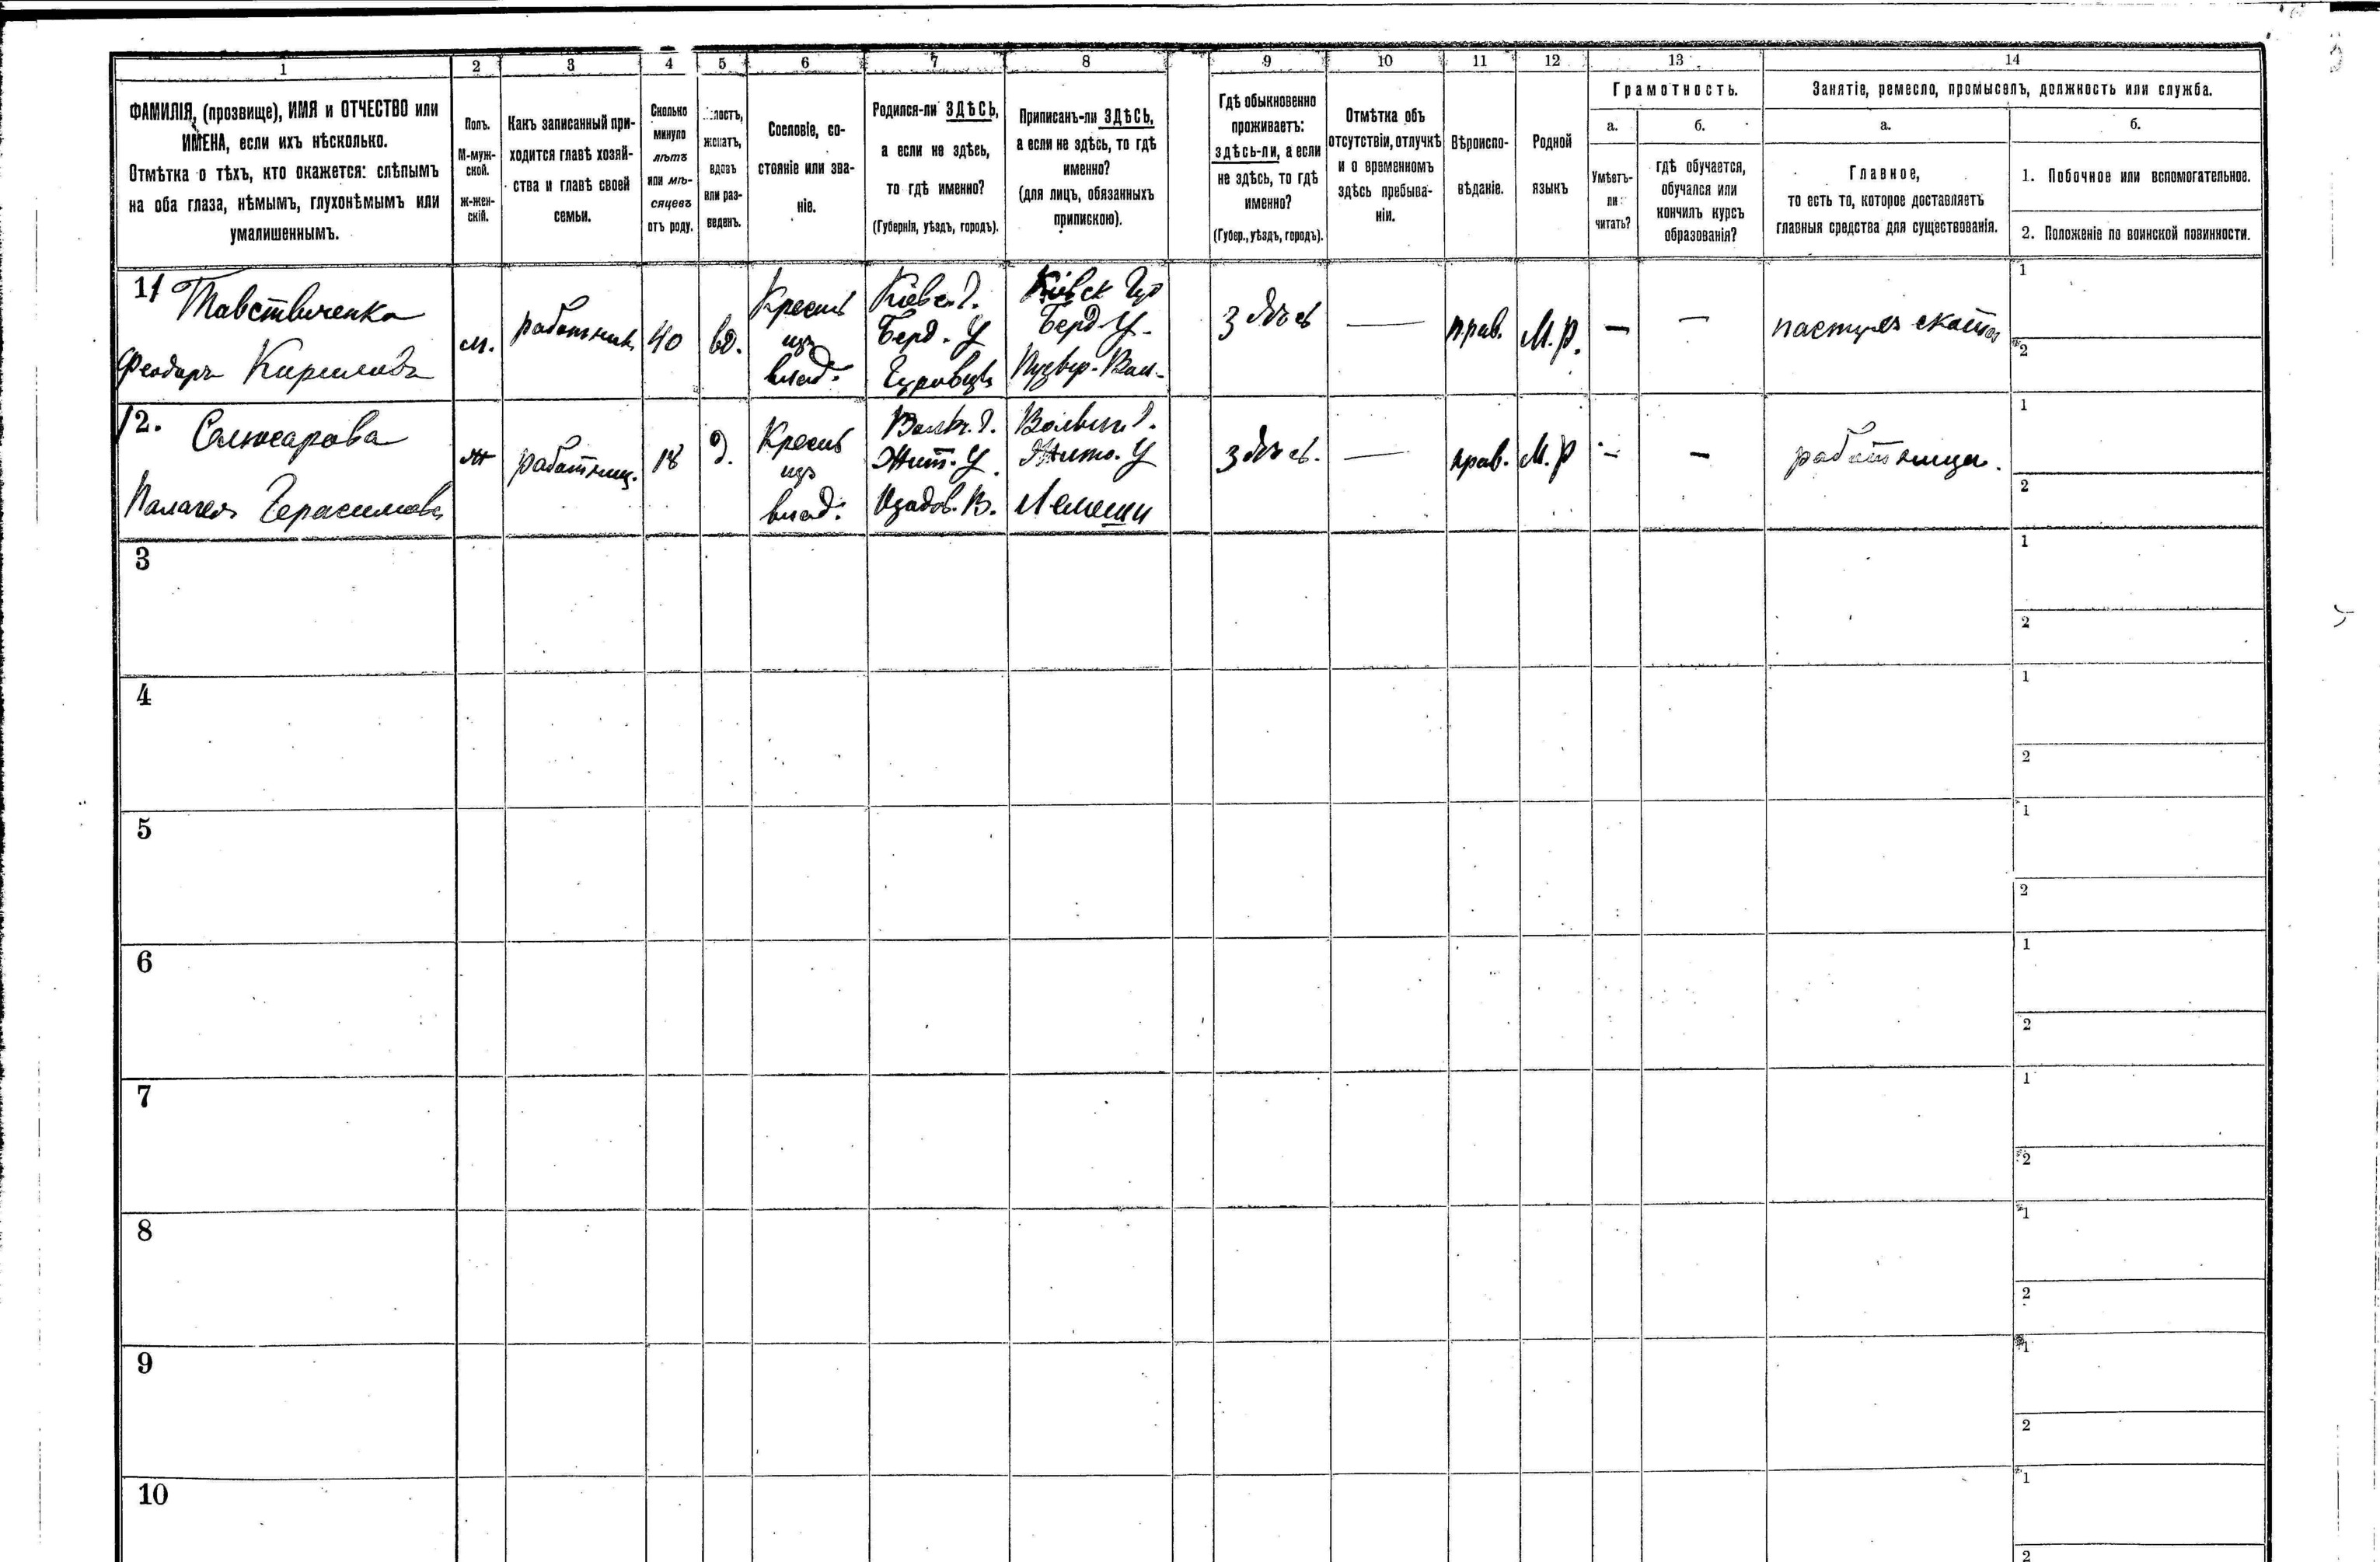 1 2 3 4 5 6 7 8 9 10 11 12 13 14
ФАМИЛІЯ, (прозвище), ИМЯ и ОТЧЕСТВО или
ИМЕНА, если ихъ нѣсколько.
Отмѣтка о тѣхъ, кто окажется: слѣпымъ
на оба глаза, нѣмымъ, глухонѣмымъ или
умалишеннымъ.
Полъ.
М-муж-
ской.
ж-жен-
скій.
Какъ записанный при-
ходится главѣ хозяй-
ства и главѣ своей
семьи.
Сколько
минуло
лѣтъ
или мѣ-
сяцевъ
отъ роду.
лостъ,
женатъ,
вдовъ
или раз-
веденъ.
Сословіе, со-
стояніе или зва-
ніе.
Родился-ли ЗДѢСЬ,
а если не здѣсь,
то гдѣ именно?
(Губернія, уѣздъ, городъ).
Приписанъ-ли ЗДѢСЬ,
а если не здѣсь, то гдѣ
именно?
(для лицъ, обязанныхъ
припискою).
Гдѣ обыкновенно
проживаетъ:
здѣсь-ли, а если
не здѣсь, то гдѣ
именно?
(Губер., уѣздъ, городъ).
Отмѣтка объ
отсутствіи, отлучкѣ
и о временномъ
здѣсь пребыва-
ніи.
Вѣроиспо-
вѣданіе.
Родной
языкъ
Грамотность.
а.
Умѣетъ-
ли
читать?
б.
гдѣ обучается,
обучался или
кончилъ курсъ
образованія?
Занятіе, ремесло, промыселъ, должность или служба.
а.
Главное,
то есть то, которое доставляетъ
главныя средства для существованія.
б.
1. Побочное или вспомогательное.
2. Положеніе по воинской повинности.
11
Феодоръ Кириловъ
м.
работникъ
40
вд.
Крестъ
изъ
влад.
Кіевс. Г.
Берд. У
Кіевск Губ
Берд У.
Здѣсь
—
прав.
М.Р.
—
—
пастухъ скота
1
2
12. Слюсарова
Палагея Герасимова
ж
работниц.
18
д.
Крестъ
изъ
влад.
Жит. У.
Волын. Г.
Жито. У
Лемеши
Здѣсь.
—
прав.
М.Р
—
—
работница.
1
2
3
1
2
4
1
2
5
1
2
6
1
2
7
1
2
8
1
2
9
1
2
10
1
2